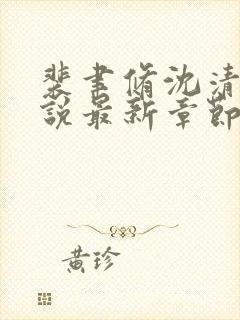 裴書脩沈清
說最新章節
黄珍